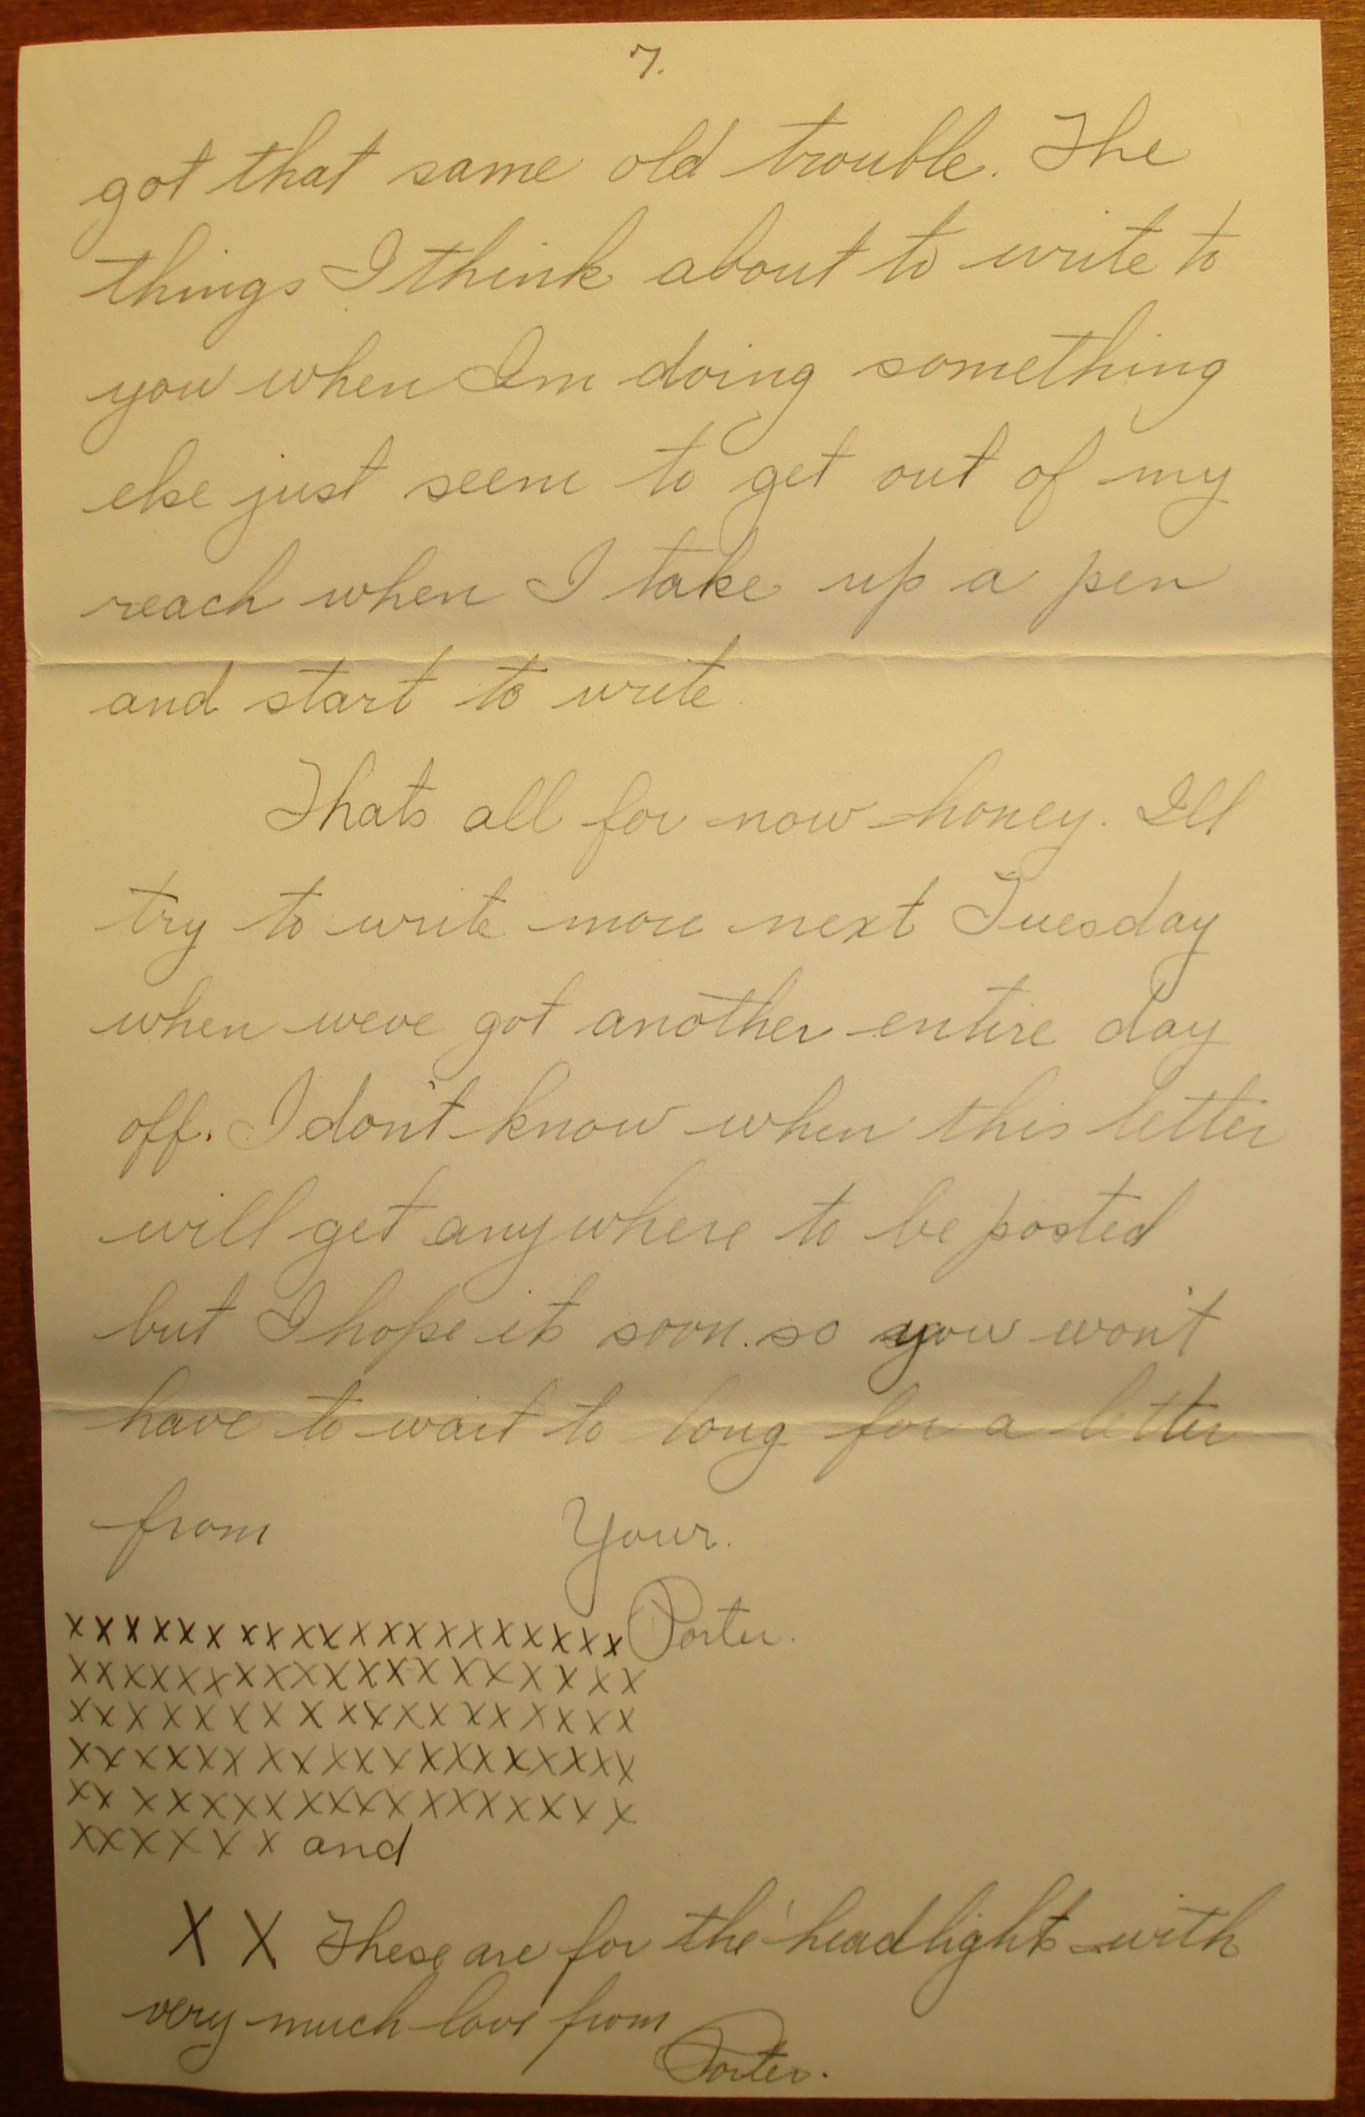 7.
got that same old trouble. The
things I think about to write to
you when Im doing something
else just seem to get out of my
reach when I take up a pen
and start to write
Thats all for now honey. Ill
try to write more next Tuesday
when weve got another entire day
off. I don't know when this letter
will get anywhere to be posted
but I hope its soon. so you won't
have to wait to long for a letter
from Your.
x x x x x x x x x x x x x x x x x x x x Porter.
x x x x x x x x x x x x x x x x x x x x
x x x x x x x x x x x x x x x x x x
x x x x x x x x x x x x x x x x x x x
x x x x x x x x x x x x x x x x x x
x x x x x x x and
X X These are for the headlights with
very much love from
Porter.